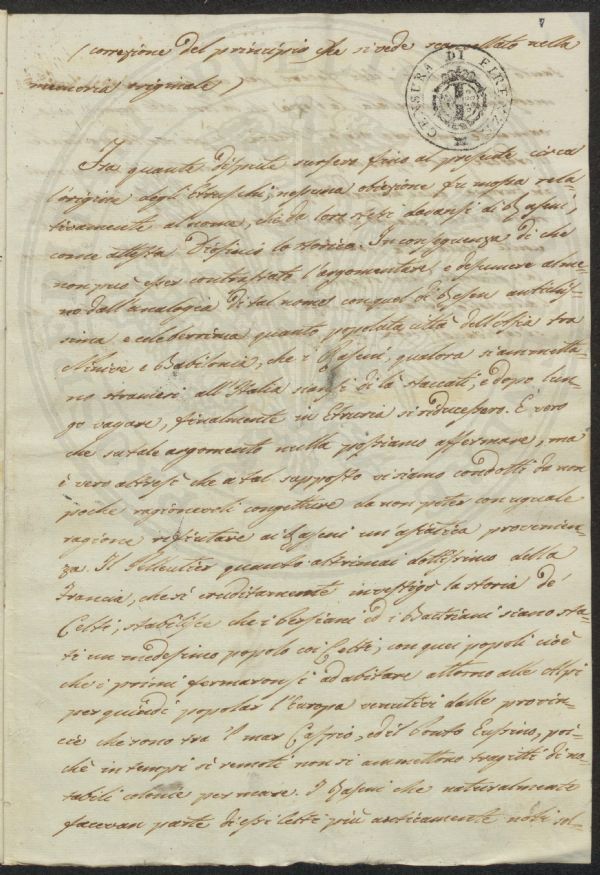 7
(correzione del principio che si vede scancellato nella
CENSURA DI FIRENZE
memoria originale)
Fra quante dispute sursero fino al presente circa
l'origine degli Etruschi, nessuna obiezione fu mossa rela-
tivamente al nome, che da loro stessi davansi di Raseni,
come attesta Dionisio lo storico. In conseguenza di che
non può esser contrastato l'argomentare, e desumere alme-
no dall'analogia di tal nome con quel di Resen antichis-
sima, e celeberrima quanto popolata città dell'Asia tra
Ninive e Babilonia, che i Raseni, qualora si ammetta-
no stranieri all'Italia siansi di là staccati, e dopo lun-
go vagare, finalmente in Etruria si riducessero. È vero
che su tale argomento nulla possiamo affermare, ma
è vero altresì che a tal supposto vi siamo condotti da non
poche ragionevoli congetture da non poter con uguale
ragione rifiutare ai Raseni un'asiatica provenien-
za. Il Pelloutier quanto altri mai dottissimo della
Francia, che sì eruditamente investigò la storia de'
Celti, stabilisce che i Persiani ed i Battriani siano sta-
ti un medesimo popolo coi Celti, con quei popoli cioè
che i primi fermaronsi ad abitare attorno alle Alpi
per quindi popolar l'Europa venutivi dalle provin-
cie che sono tra 'l mar Caspio, ed il Ponto Eussino, poi-
chè in tempi sì remoti non si ammettono tragitti di no-
tabili colonie per mare. I Raseni che naturalmente
facevan parte di essi Celti più anticamente nobi